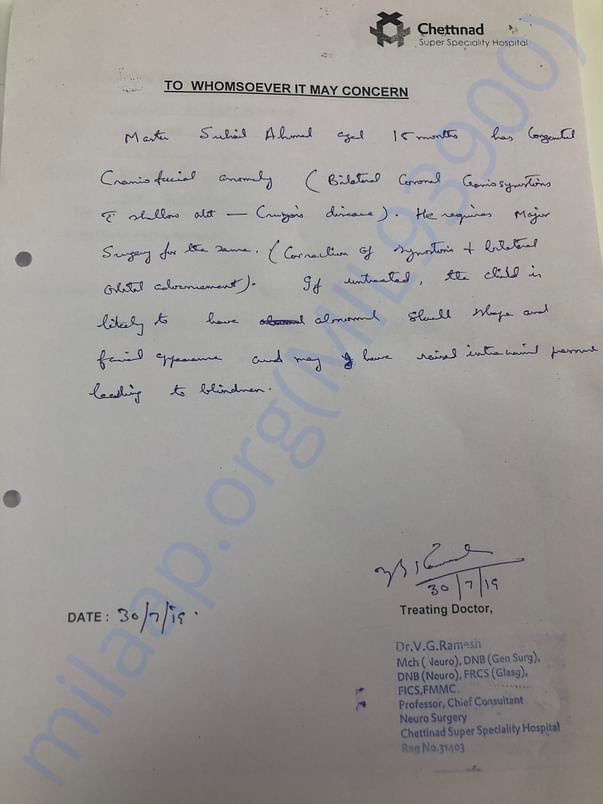 Chettinad
Super Speciality Hospital
TO WHOMSOEVER IT MAY CONCERN
Master Suhail Ahmed aged 18 months has Congenital
Craniofacial anomaly ( Bilateral Coronal Craniosynostosis
c̄ shallow orbit — Crouzon's disease). He requires Major
Surgery for the same. ( Correction of synostosis + bilateral
orbital advancement). If untreated, the child is
likely to have abnormal skull shape and
facial appearance and may have raised intracranial pressure
leading to blindness.
30/7/19
DATE : 30/7/19.
Treating Doctor,
Dr.V.G.Ramesh
Mch ( Neuro), DNB (Gen Surg),
DNB (Neuro), FRCS (Glasg),
FICS,FMMC.
Professor, Chief Consultant
Neuro Surgery
Chettinad Super Speciality Hospital
Reg No.31403
milaap.org(MIL93900)